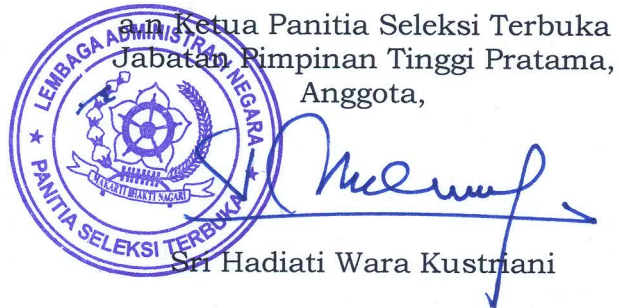 a.n. Ketua Panitia Seleksi Terbuka
Jabatan Pimpinan Tinggi Pratama,
Anggota,
LEMBAGA ADMINISTRASI NEGARA
MAKARTI BHAKTI NAGARI
PANITIA SELEKSI TERBUKA
Sri Hadiati Wara Kustriani